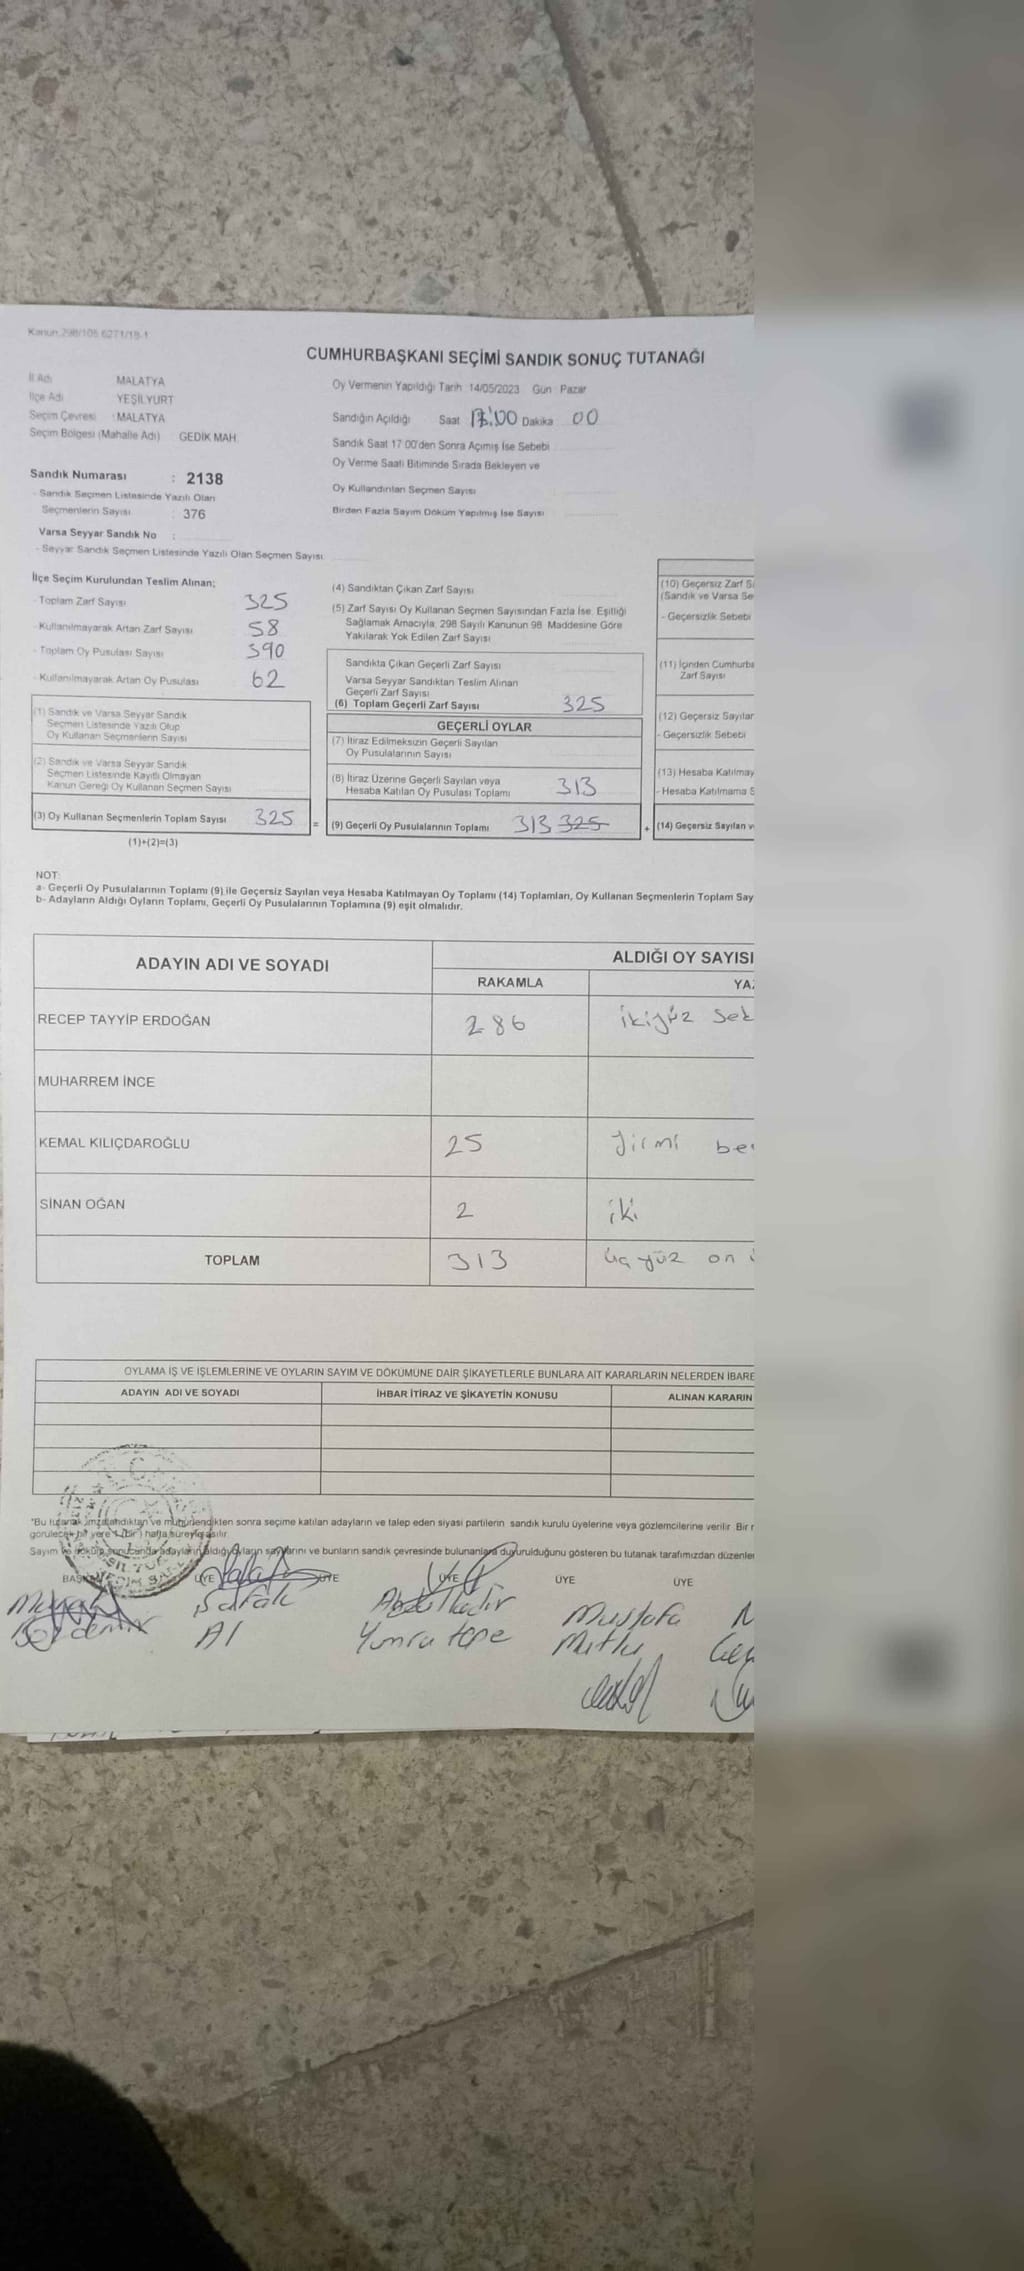 Kanun 298/105 6271/18-1
CUMHURBAŞKANI SEÇİMİ SANDIK SONUÇ TUTANAĞI
İl Adı MALATYA
İlçe Adı YEŞİLYURT
Seçim Çevresi MALATYA
Seçim Bölgesi (Mahalle Adı) GEDİK MAH.
Oy Vermenin Yapıldığı Tarih 14/05/2023 Gün Pazar
Sandığın Açıldığı Saat 17:00 Dakika 00
Sandık Saat 17 00'den Sonra Açımış İse Sebebi
Oy Verme Saati Bitiminde Sırada Bekleyen ve
Oy Kullandırılan Seçmen Sayısı
Birden Fazla Sayım Döküm Yapılmış İse Sayısı
Sandık Numarası : 2138
- Sandık Seçmen Listesinde Yazılı Olan
Seçmenlerin Sayısı : 376
Varsa Seyyar Sandık No :
- Seyyar Sandık Seçmen Listesinde Yazılı Olan Seçmen Sayısı
İlçe Seçim Kurulundan Teslim Alınan;
- Toplam Zarf Sayısı 325
- Kullanılmayarak Artan Zarf Sayısı 58
- Toplam Oy Pusulası Sayısı 390
- Kullanılmayarak Artan Oy Pusulası 62
(1) Sandık ve Varsa Seyyar Sandık
Seçmen Listesinde Yazılı Olup
Oy Kullanan Seçmenlerin Sayısı
(2) Sandık ve Varsa Seyyar Sandık
Seçmen Listesinde Kayıtlı Olmayan
Kanun Gereği Oy Kullanan Seçmen Sayısı
(3) Oy Kullanan Seçmenlerin Toplam Sayısı 325
(1)+(2)=(3)
=
(4) Sandıktan Çıkan Zarf Sayısı
(5) Zarf Sayısı Oy Kullanan Seçmen Sayısından Fazla İse, Eşitliği
Sağlamak Amacıyla, 298 Sayılı Kanunun 98. Maddesine Göre
Yakılarak Yok Edilen Zarf Sayısı
Sandıkta Çıkan Geçerli Zarf Sayısı
Varsa Seyyar Sandıktan Teslim Alınan
Geçerli Zarf Sayısı
(6) Toplam Geçerli Zarf Sayısı 325
GEÇERLİ OYLAR
(7) İtiraz Edilmeksizin Geçerli Sayılan
Oy Pusulalarının Sayısı
(8) İtiraz Üzerine Geçerli Sayılan veya
Hesaba Katılan Oy Pusulası Toplamı 313
(9) Geçerli Oy Pusulalarının Toplamı 313 325
+
(10) Geçersiz Zarf
(Sandık ve Varsa
- Geçersizlik Sebebi
(11) İçinden
Zarf Sayısı
(12) Geçersiz
- Geçersizlik Sebebi
(13) Hesaba
- Hesaba Katılmama
(14) Geçersiz Sayılan
NOT:
a- Geçerli Oy Pusulalarının Toplamı (9) ile Geçersiz Sayılan veya Hesaba Katılmayan Oy Toplamı (14) Toplamları, Oy Kullanan Seçmenlerin Toplam
b- Adayların Aldığı Oyların Toplamı, Geçerli Oy Pusulalarının Toplamına (9) eşit olmalıdır.
ADAYIN ADI VE SOYADI
ALDIĞI OY SAYISI
RAKAMLA
RECEP TAYYİP ERDOĞAN 286 ikiyüz
MUHARREM İNCE
KEMAL KILIÇDAROĞLU 25 yirmi
SİNAN OĞAN 2 iki
TOPLAM 313 üç yüz on
OYLAMA İŞ VE İŞLEMLERİNE VE OYLARIN SAYIM VE DÖKÜMÜNE DAİR ŞİKAYETLERLE BUNLARA AİT KARARLARIN NELERDEN
ADAYIN ADI VE SOYADI İHBAR İTİRAZ VE ŞİKAYETİN KONUSU ALINAN KARARIN
*Bu tutanak imzalandıktan ve mühürlendikten sonra seçime katılan adayların ve talep eden siyasi partilerin sandık kurulu üyelerine veya gözlemcilerine verilir. Bir
görülecek bir yere 1 (bir) hafta süreyle asılır.
Sayım ve döküm sonucunda adayların aldığı oyların sayılarını ve bunların sandık çevresinde bulunanlara duyurulduğunu gösteren bu tutanak tarafımızdan
ÜYE ÜYE ÜYE ÜYE ÜYE
Şafak Abdulkadir Mustafa
Al Yumrutepe Mutlu